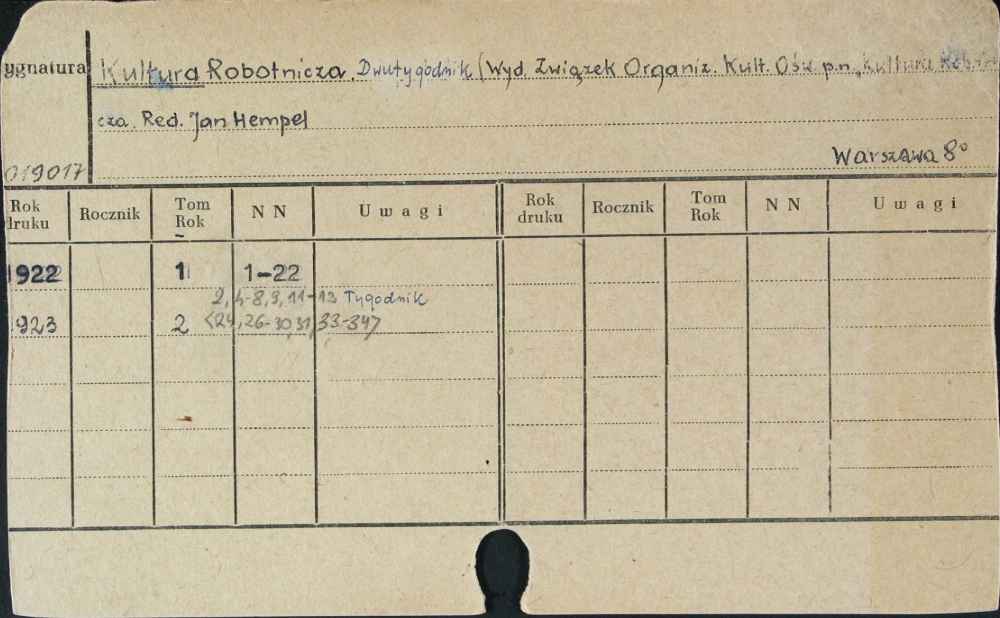 ygnatura Kultura Robotnicza. Dwutygodnik (Wyd. Związek Organiz. Kult. Ośw. p.n. „Kultura Robotni
cza. Red. Jan Hempel
Warszawa 8°
019017
Rok druku Rocznik Tom Rok N N Uwagi Rok druku Rocznik Tom Rok N N Uwagi
1922 1 1-22
2, 4-8, 9, 11-13 Tygodnik
1923 2 <24, 26-30, 31, 33-34>